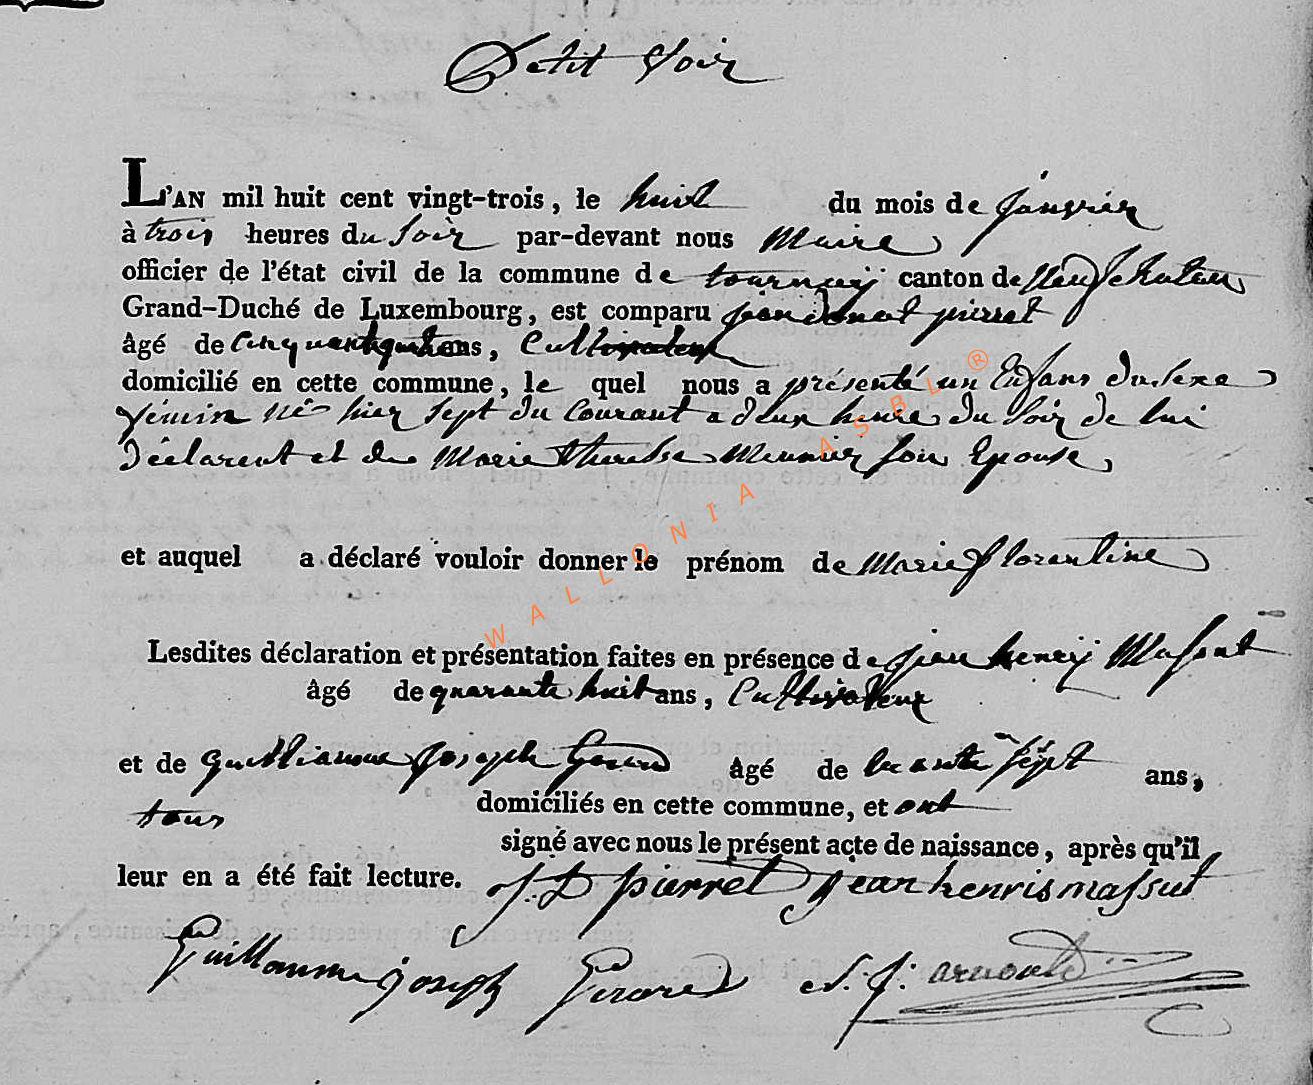 Petit Voir
L'AN mil huit cent vingt-trois, le huit du mois de janvier
à trois heures du soir par-devant nous Maire
officier de l'état civil de la commune de tournay canton de Neufchateau
Grand-Duché de Luxembourg, est comparu jean donat pierret
âgé de Cinquante quatre ans, Cultivateur
domicilié en cette commune, le quel nous a présenté un Enfans du sexe
féminin né hier sept du Courant a deux heure du soir de lui
déclarent et de Marie therese Meunier son Epouse
et auquel a déclaré vouloir donner le prénom de Marie florentine
Lesdites déclaration et présentation faites en présence de jean henrij Massut
âgé de quarante huit ans, Cultivateur
et de guilliaume joseph Gerard âgé de trante sept ans,
tous domiciliés en cette commune, et ont
signé avec nous le présent acte de naissance, après qu'il
leur en a été fait lecture. J. D pierret jean henris massut
Guillaumme joseph Gerard N. J. arnould
WALLONIA ASBL ®